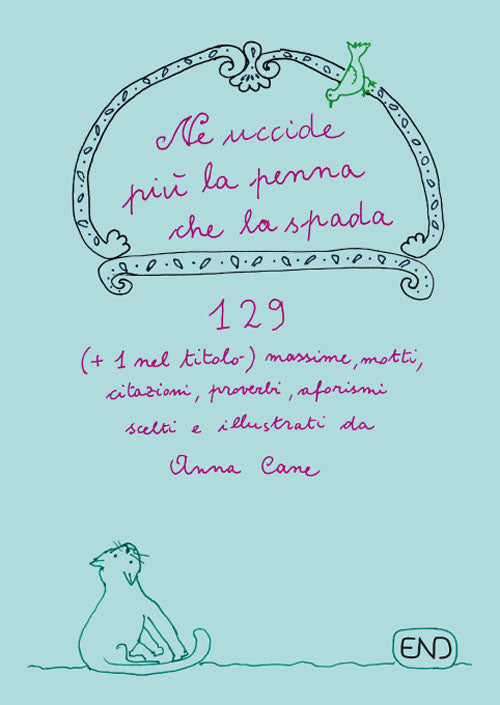 Ne uccide
più la penna
che la spada
129
(+ 1 nel titolo) massime, motti,
citazioni, proverbi, aforismi
scelti e illustrati da
Anna Cane
END